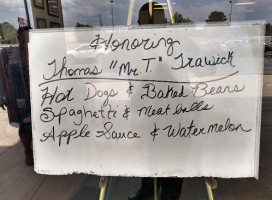 Honoring
Thomas "Mr. T." Trawick
Hot Dogs & Baked Beans
Spaghetti & Meatballs
Apple Sauce & Watermelon